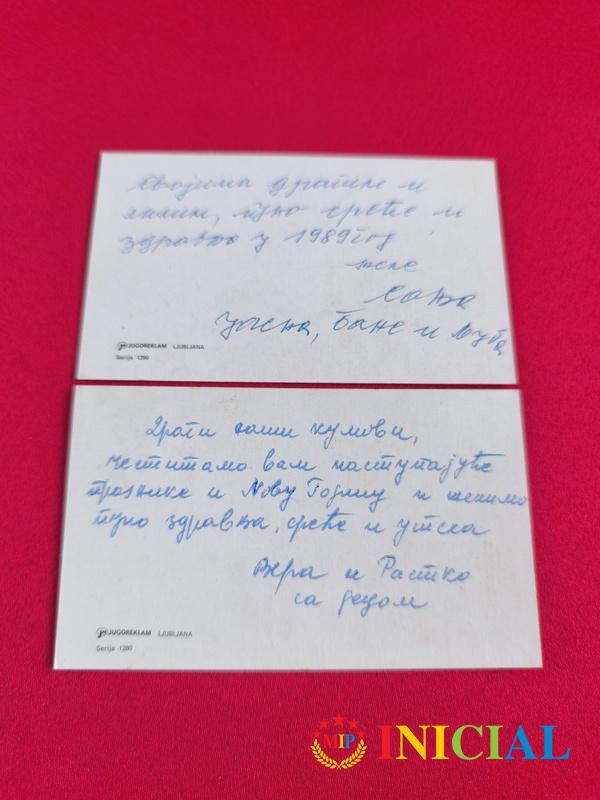 Својима драгим и
милим, пуно среће и
здравља у 1989 год
желе
Сања
Јасна, Бане и Љуба
JUGOREKLAM LJUBLJANA
Serija 1280
Драги наши кумови,
честитамо вам наступајуће
празнике и Нову Годину и желимо
пуно здравља, среће и успеха
Вера и Растко
са децом
JUGOREKLAM LJUBLJANA
Serija 1280
MIP INICIAL